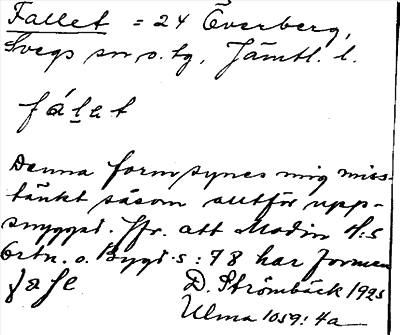 Fallet = 24 Överberg,
Svegs sn o. tg, Jämtl. l.
fá̀lₑt
Denna form synes mig miss-
tänkt såsom alltför upp-
snyggad. Jfr. att Modin H:s
Ortn. o. Bygd s: 78 har formen
D. Strömbäck 1925
Ulma 1059: 4a